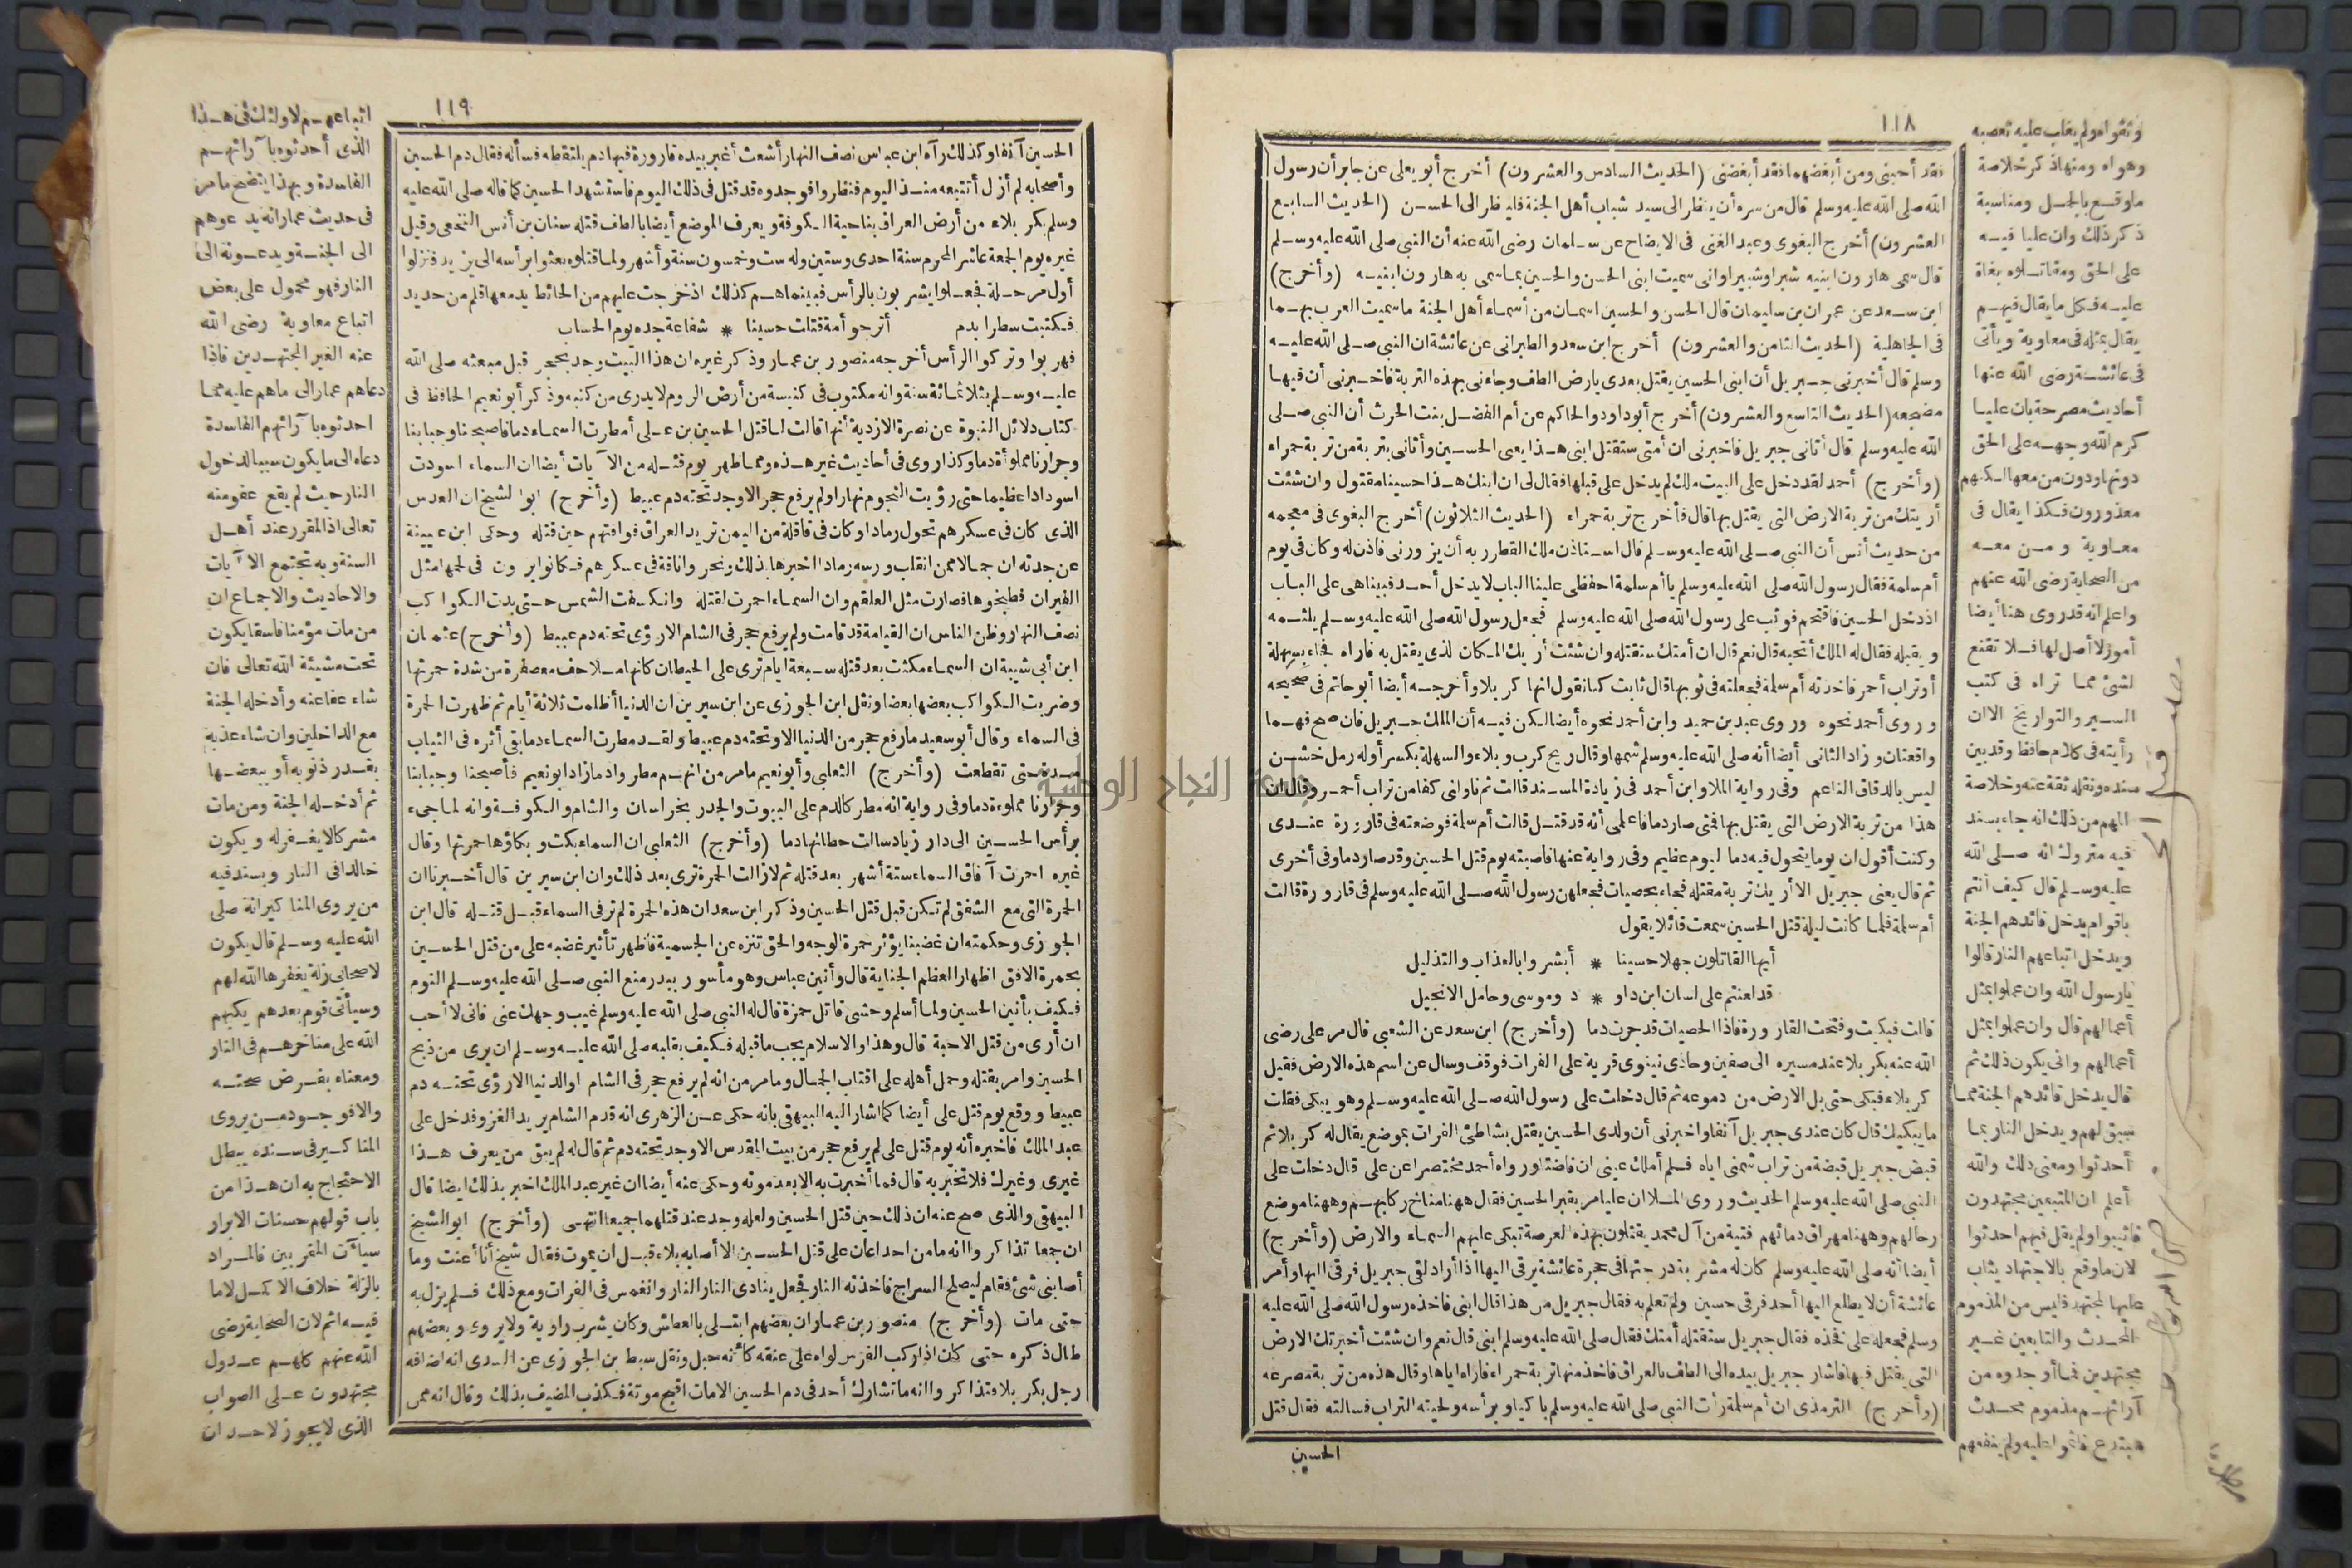 ١١٨
فقد أحبنى ومن أبغضهما فقد أبغضنى (الحديث السادس والعشرون) أخرج أبو يعلى عن جابر أن رسول
الله صلى الله عليه وسلم قال من سره أن ينظر الى سيد شباب أهل الجنة فلينظر الى الحسن (الحديث السابع
العشرون) أخرج البغوى وعبد الغنى فى الايضاح عن سلمان رضى الله عنه أن النبى صلى الله عليه وسلم
قال سمى هارون ابنيه شبرا وشبيرا وانى سميت ابنى الحسن والحسين بما سمى به هارون ابنيه (وأخرج)
ابن سعد عن عمران بن سليمان قال الحسن والحسين اسمان من أسماء أهل الجنة ما سميت العرب بهما
فى الجاهلية (الحديث الثامن والعشرون) أخرج ابن سعد والطبرانى عن عائشة ان النبى صلى الله عليه
وسلم قال أخبرنى جبريل أن ابنى الحسين يقتل بعدى بارض الطف وجاءنى بهذه التربة فاخبرنى أن فيها
مضجعه (الحديث التاسع والعشرون) أخرج أبو داود والحاكم عن أم الفضل بنت الحرث أن النبى صلى
الله عليه وسلم قال أتانى جبريل فاخبرنى ان أمتى ستقتل ابنى هذا يعنى الحسين وأتانى بتربة من تربة حمراء
(وأخرج) أحمد لقد دخل على البيت ملك لم يدخل على قبلها فقال لى ان ابنك هذا حسينا مقتول وان شئت
أريتك من تربة الارض التى يقتل بها قال فأخرج تربة حمراء (الحديث الثلاثون) أخرج البغوى فى معجمه
من حديث أنس أن النبى صلى الله عليه وسلم قال استأذن ملك القطر ربه أن يزورنى فاذن له وكان فى يوم
أم سلمة فقال رسول الله صلى الله عليه وسلم يا أم سلمة احفظى علينا الباب لا يدخل أحد فبينا هى على الباب
اذ دخل الحسين فاقتحم فوثب على رسول الله صلى الله عليه وسلم فجعل رسول الله صلى الله عليه وسلم يلثمه
ويقبله فقال له الملك أتحبه قال نعم قال ان أمتك ستقتله وان شئت أريك المكان لذى يقتل به فاراه فجاء بسهلة
أو تراب أحمر فاخذته أم سلمة فجعلته فى ثوبها قال ثابت كنا نقول انها كربلا وأخرجه أيضا أبو حاتم فى صحيحه
وروى أحمد نحوه وروى عبد بن حميد وابن أحمد نحوه أيضا لكن فيه أن الملك جبريل فان صح فهما
واقعتان وزاد الثانى أيضا أنه صلى الله عليه وسلم شمها وقال ريح كرب وبلاء والسهلة بكسر أوله رمل خشن
ليس بالدقاق الناعم وفى رواية الملا وابن أحمد فى زيادة المسند قالت ثم ناولنى كفا من تراب أحمر وقال ان
هذا من تربة الارض التى يقتل بها فمتى صار دما فاعلمى أنه قد قتل قالت أم سلمة فوضعته فى قارورة عندى
وكنت أقول ان يوما يتحول فيه دما ليوم عظيم وفى رواية عنها فاصبته يوم قتل الحسين وقد صار دما وفى أخرى
ثم قال يعنى جبريل الا أريك تربة مقتله فجاء بحصيات فجعلهن رسول الله صلى الله عليه وسلم فى قارورة قالت
أم سلمة فلما كانت ليلة قتل الحسين سمعت قائلا يقول
أيها القاتلون جهلا حسينا * أبشروا بالعذاب والتذليل
قد لعنتم على لسان ابن داو * د وموسى وحامل الانجيل
قالت فبكيت وفتحت القارورة فاذا الحصيات قد جرت دما (وأخرج) ابن سعد عن الشعبى قال مر على رضى
الله عنه بكربلا عند مسيره الى صفين وحاذى نينوى قرية على الفرات فوقف وسال عن اسم هذه الارض فقيل
كربلاء فبكى حتى بل الارض من دموعه ثم قال دخلت على رسول الله صلى الله عليه وسلم وهو يبكى فقلت
ما يبكيك قال كان عندى جبريل آنفا واخبرنى أن ولدى الحسين يقتل بشاطئ الفرات بموضع يقال له كربلا ثم
قبض جبريل قبضة من تراب شمنى اياه فلم أملك عينى ان فاضتا ورواه أحمد مختصرا عن على قال دخلت على
النبى صلى الله عليه وسلم الحديث وروى الملا ان عليا مر بقبر الحسين فقال ههنا مناخ ركابهم وههنا موضع
رحالهم وههنا مهراق دمائهم فتية من آل محمد يقتلون بهذه العرصة تبكى عليهم السماء والارض (وأخرج)
أيضا أنه صلى الله عليه وسلم كان له مشربة درجتها فى حجرة عائشة يرقى اليها اذا أراد لقى جبريل فرقى اليها وأمر
عائشة أن لا يطلع اليها أحد فرقى حسين ولم تعلم به فقال جبريل من هذا قال ابنى فاخذه رسول الله صلى الله عليه
وسلم فجعله على فخذه فقال جبريل ستقتله أمتك فقال صلى الله عليه وسلم ابنى قال نعم وان شئت أخبرتك الارض
التى يقتل فيها فاشار جبريل بيده الى الطف بالعراق فاخذ منها تربة حمراء فاراه اياها وقال هذه من تربة مصرعه
(وأخرج) الترمذى ان أم سلمة رأت النبى صلى الله عليه وسلم باكيا وبرأسه ولحيته التراب فسالته فقال قتل
الحسين
وتقواه ولم يغلب عليه تعصبه
وهواه ومنها ذكر خلاصة
ما وقع بالجمل ومناسبة
ذكر ذلك وان عليا فيه
على الحق ومقاتلوه بغاة
عليه فكل ما يقال فيهم
يقال بمثله فى معاوية ويأتى
فى عائشة رضى الله عنها
أحاديث مصرحة بان عليا
كرم الله وجهه على الحق
دونها ودون من معها لكنهم
معذورون فكذا يقال فى
معاوية ومن معه
من الصحابة رضى الله عنهم
واعلم انه قد روى هنا أيضا
أمور لا أصل لها فلا تقنع
لشئ مما تراه فى كتب
السير والتواريخ الا ان
رأيته فى كلام حافظ وقد بين
سنده ونقله ثقة عنه وخلاصة
المهم من ذلك انه جاء بسند
فيه متروك انه صلى الله
عليه وسلم قال كيف أنتم
باقوام يدخل قائدهم الجنة
ويدخل اتباعهم النار قالوا
يا رسول الله وان عملوا بمثل
أعمالهم قال وان عملوا بمثل
أعمالهم وانى يكون ذلك ثم
قال يدخل قائدهم الجنة بما
سبق لهم ويدخل النار بما
أحدثوا ومعنى ذلك والله
أعلم ان المتبعين مجتهدون
فاثيبوا ولم يقل فيهم احدثوا
لان ما وقع بالاجتهاد يثاب
عليها المجتهد فليس من المذموم
المحدث والتابعين غير
مجتهدين فما أوجدوه من
آرائهم مذموم محدث
مبتدع فاثموا عليه ولم ينفعهم
١١٩
الحسين آنفا وكذلك رآه ابن عباس نصف النهار أشعث أغبر بيده قارورة فيها دم يلتقطه فسأله فقال دم الحسين
وأصحابه لم أزل أتتبعه منذ اليوم فنظروا فوجدوه قد قتل فى ذلك اليوم فاستشهد الحسين كما قاله صلى الله عليه
وسلم بكربلاء من أرض العراق بناحية الكوفة ويعرف الموضع أيضا بالطف قتله سنان بن أنس النخعى وقيل
غيره يوم الجمعة عاشر المحرم سنة احدى وستين وله ست وخمسون سنة وأشهر ولما قتلوه بعثوا برأسه الى يزيد فنزلوا
أول مرحلة فجعلوا يشربون بالرأس فبينما هم كذلك اذ خرجت عليهم من الحائط يد معها قلم من حديد
فكتبت سطرا بدم أترجو أمة قتلت حسينا * شفاعة جده يوم الحساب
فهربوا وتركوا الرأس أخرجه منصور بن عمار وذكر غيره ان هذا البيت وجد بحجر قبل مبعثه صلى الله
عليه وسلم بثلاثمائة سنة وانه مكتوب فى كنيسة من أرض الروم لا يدرى من كتبه وذكر أبو نعيم الحافظ فى
كتاب دلائل النبوة عن نصرة الازدية أنها قالت لما قتل الحسين بن على أمطرت السماء دما فاصبحنا وجبابنا
وجرارنا مملوأة دما وكذا روى فى أحاديث غير هذه ومما ظهر يوم قتله من الآيات أيضا ان السماء اسودت
اسودادا عظيما حتى رؤيت النجوم نهارا ولم يرفع حجر الا وجد تحته دم عبيط (وأخرج) ابو الشيخ ان الورس
الذى كان فى عسكرهم تحول رمادا وكان فى قافلة من اليمن تريد العراق فوافتهم حين قتله وحكى ابن عيينة
عن جدته ان جمالا ممن انقلب ورسه رمادا أخبرها بذلك ونحروا ناقة فى عسكرهم فكانوا يرون فى لحمها مثل
الفيران فطبخوها فصارت مثل العلقم وان السماء احمرت لقتله وانكسفت الشمس حتى بدت الكواكب
نصف النهار وظن الناس ان القيامة قد قامت ولم يرفع حجر فى الشام الا رؤى تحته دم عبيط (وأخرج) عثمان
ابن أبى شيبة ان السماء مكثت بعد قتله سبعة ايام ترى على الحيطان كانها ملاحف معصفرة من شدة حمرتها
وضربت الكواكب بعضها بعضا ونقل ابن الجوزى عن ابن سيرين ان الدنيا أظلمت ثلاثة أيام ثم ظهرت الحمرة
فى السماء وقال أبو سعيد ما رفع حجر من الدنيا الا وتحته دم عبيط ولقد مطرت السماء دما بقى أثره فى الثياب
مدة حتى تقطعت (وأخرج) الثعلبى وأبو نعيم ما مر من انهم مطروا دما زاد ابو نعيم فأصبحنا وجبابنا
وجرارنا مملوءة دما وفى رواية انه مطر كالدم على البيوت والجدر بخراسان والشام والكوفة وانه لما جىء
برأس الحسين الى دار زياد سالت حيطانها دما (وأخرج) الثعلبى ان السماء بكت وبكاؤها حمرتها وقال
غيره احمرت آفاق السماء ستة أشهر بعد قتله ثم لا زالت الحمرة ترى بعد ذلك وان ابن سيرين قال أخبرنا ان
الحمرة التى مع الشفق لم تكن قبل قتل الحسين وذكر ابن سعد ان هذه الحمرة لم تر فى السماء قبل قتله قال ابن
الجوزى وحكمته ان غضبنا يؤثر حمرة الوجه والحق تنزه عن الجسمية فاظهر تأثير غضبه على من قتل الحسين
بحمرة الافق اظهارا لعظم الجناية قال وأنين عباس وهو مأسور ببدر منع النبى صلى الله عليه وسلم النوم
فكيف بأنين الحسين ولما أسلم وحشى قاتل حمزة قال له النبى صلى الله عليه وسلم غيب وجهك عنى فانى لا أحب
ان أرى من قتل الاحبة قال وهذا والاسلام يجب ما قبله فكيف بقلبه صلى الله عليه وسلم ان يرى من ذبح
الحسين وامر بقتله وحمل أهله على اقتاب الجمال وما مر من انه لم يرفع حجر فى الشام او الدنيا الا رؤى تحته دم
عبيط ووقع يوم قتل على أيضا كما اشار اليه البيهقى بانه حكى عن الزهرى انه قدم الشام يريد الغزو فدخل على
عبد الملك فاخبره أنه يوم قتل على لم يرفع حجر من بيت المقدس الا وجد تحته دم ثم قال له لم يبق من يعرف هذا
غيرى وغيرك فلا تخبر به قال فما أخبرت به الا بعد موته وحكى عنه أيضا ان غير عبد الملك اخبر بذلك ايضا قال
البيهقى والذى صح عنه ان ذلك حين قتل الحسين ولعله وجد عند قتلهما جميعا انتهى (وأخرج) ابو الشيخ
ان جمعا تذاكروا انه ما من احد اعان على قتل الحسين الا أصابه بلاء قبل ان يموت فقال شيخ أنا أعنت وما
أصابنى شئ فقام ليصلح السراج فاخذته النار فجعل ينادى النار النار وانغمس فى الفرات ومع ذلك فلم يزل به
حتى مات (وأخرج) منصور بن عمار ان بعضهم ابتلى بالعطش وكان يشرب راوية ولا يروى وبعضهم
طال ذكره حتى كان اذا ركب الفرس لواه على عنقه كأنه حبل ونقل سبط بن الجوزى عن السدى انه اضافه
رجل بكربلا فتذاكروا انه ما تشارك أحد فى دم الحسين الا مات اقبح موتة فكذب المضيف بذلك وقال انه ممن
اتباعهم لاولئك فى هذا
الذى أحدثوه بآرائهم
الفاسدة وبهذا يتضح ما مر
فى حديث عمار انه يدعوهم
الى الجنة ويدعونه الى
النار فهو محمول على بعض
اتباع معاوية رضى الله
عنه الغير المجتهدين فاذا
دعاهم عمار الى ما هم عليه مما
احدثوه بآرائهم الفاسدة
دعاه الى ما يكون سببا لدخول
النار حيث لم يقع عفو منه
تعالى اذ المقرر عند أهل
السنة وبه تجتمع الآيات
والاحاديث والاجماع ان
من مات مؤمنا فاسقا يكون
تحت مشيئة الله تعالى فان
شاء عفا عنه وأدخله الجنة
مع الداخلين وان شاء عذبه
بقدر ذنوبه أو ببعضها
ثم أدخله الجنة ومن مات
مشركا لا يغفر له ويكون
خالدا فى النار وبسند فيه
من يروى المناكير انه صلى
الله عليه وسلم قال يكون
لاصحابى زلة يغفرها الله لهم
وسيأتى قوم بعدهم يكبهم
الله على مناخرهم فى النار
ومعناه بفرض صحته
والا فوجود من يروى
المناكير فى سنده يبطل
الاحتجاج به ان هذا من
باب قولهم حسنات الابرار
سيآت المقربين فالمراد
بالزلة خلاف الاكمل لا ما
فيه اثم لان الصحابة رضى
الله عنهم كلهم عدول
مجتهدون على الصواب
الذى لا يجوز لاحد ان
جامعة النجاح الوطنية